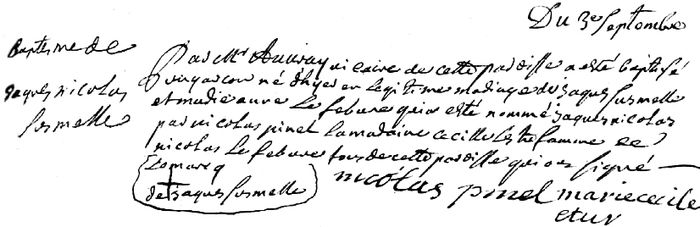 Du 3e Septembre
Baptesme de
Jaques nicolas
Surmelle
Par Mr Auvray vicaire de cette paroisse a esté baptisé
un garcon né d'hyer en legitisme mariage de Jaques Surmelle
et marie anne Le febure qui a esté nommé Jaques nicolas
par nicolas pinel la maraine cecille femme de
nicolas Le febure tous de cette paroisse qui ont signé
La marq
de Jaques Surmelle
nicolas pinel marie cecile